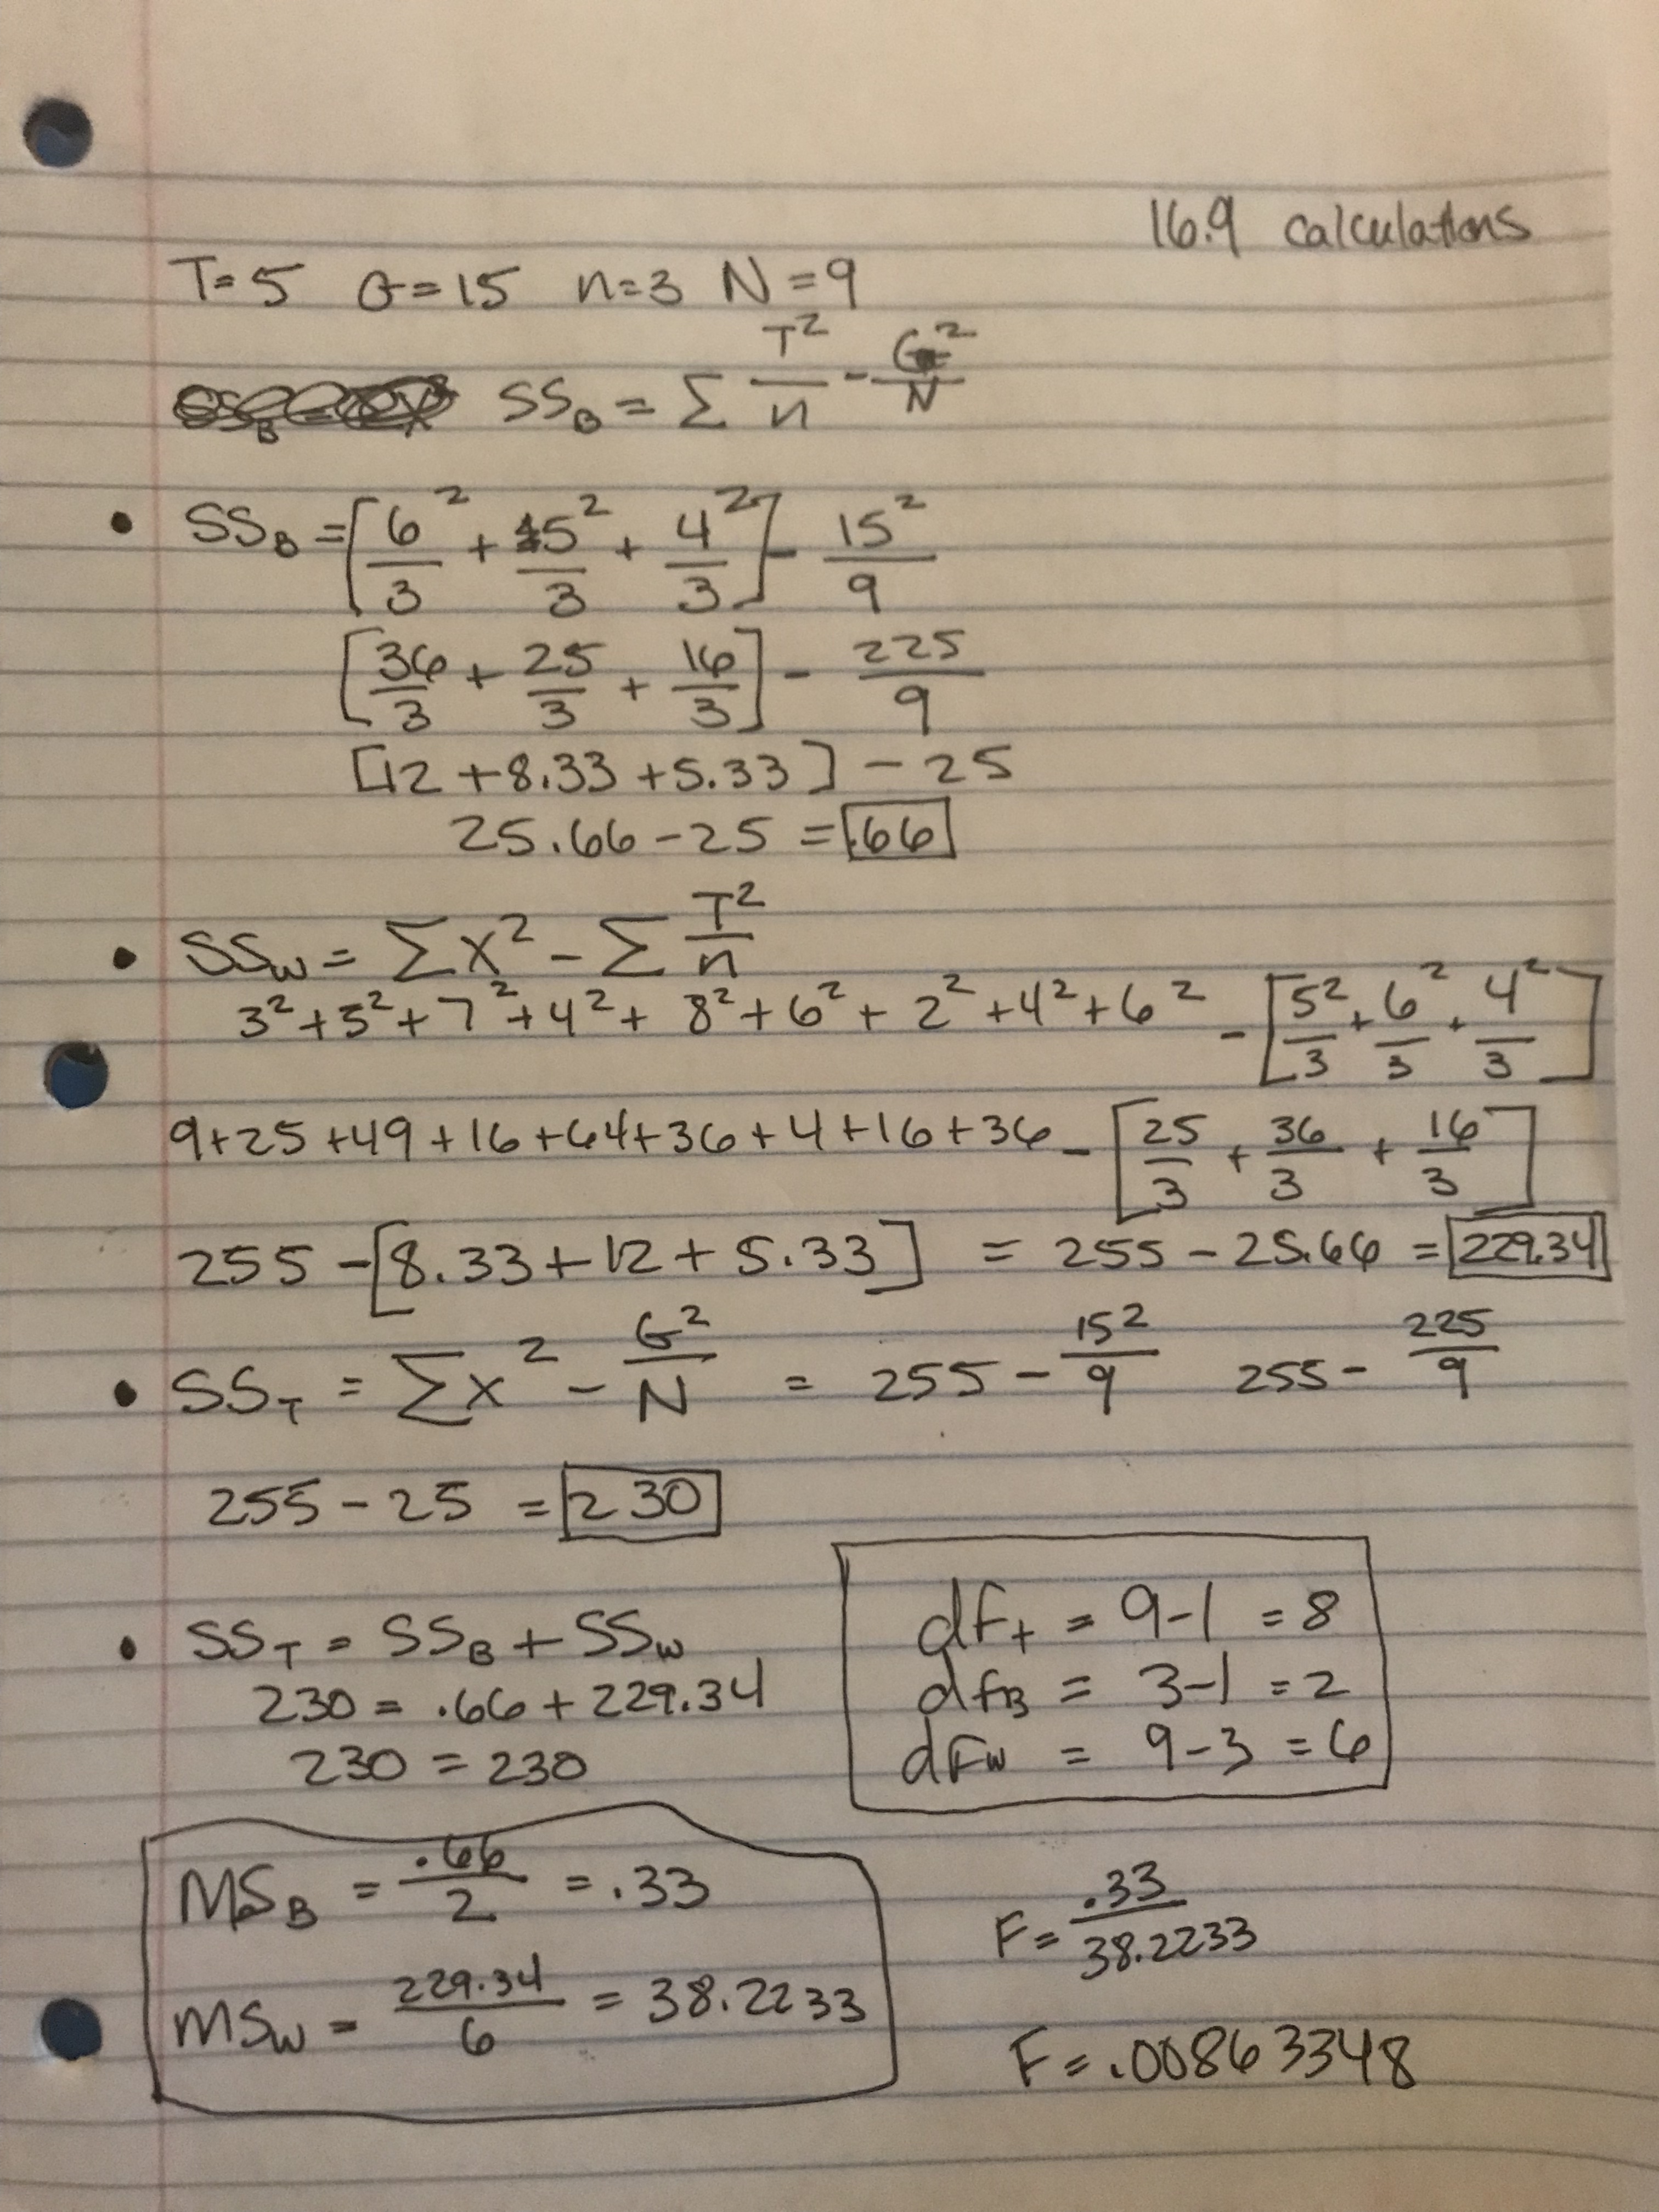 16.9 calculations
T=5 G=15 n=3 N=9
SS_B = Σ T²/n - G²/N
• SS_B = [6²/3 + 5²/3 + 4²/3] - 15²/9
[36/3 + 25/3 + 16/3] - 225/9
[12 + 8.33 + 5.33] - 25
25.66 - 25 = .66
• SS_W = ΣX² - Σ T²/n
3² + 5² + 7² + 4² + 8² + 6² + 2² + 4² + 6² - [5²/3 + 6²/3 + 4²/3]
9+25+49+16+64+36+4+16+36 - [25/3 + 36/3 + 16/3]
255 - [8.33 + 12 + 5.33] = 255 - 25.66 = 229.34
• SS_T = ΣX² - G²/N = 255 - 15²/9 255 - 225/9
255 - 25 = 230
• SS_T = SS_B + SS_W
230 = .66 + 229.34
230 = 230
df_t = 9-1 = 8
df_B = 3-1 = 2
df_W = 9-3 = 6
MS_B = .66/2 = .33
MS_W = 229.34/6 = 38.2233
F = .33/38.2233
F = .00863348